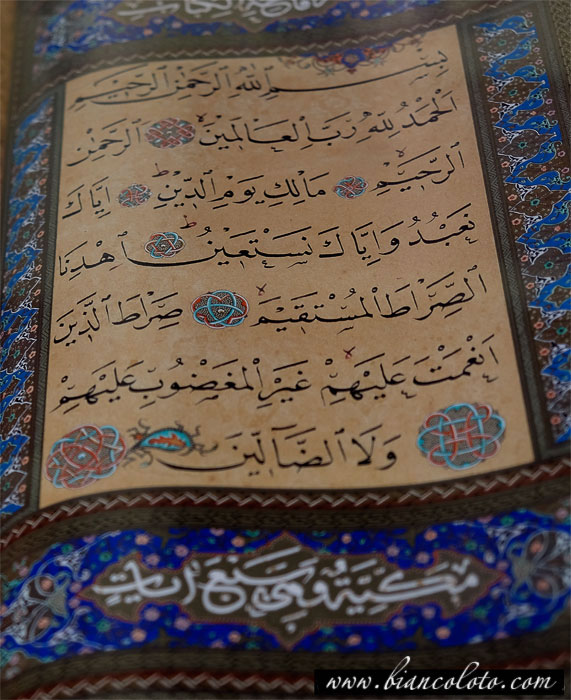 فاتحة الكتاب
بِسْمِ اللّٰهِ الرَّحْمٰنِ الرَّحٖيمِ
اَلْحَمْدُ لِلّٰهِ رَبِّ الْعَالَمٖينَ الرَّحْمٰنِ
الرَّحٖيمِ مَالِكِ يَوْمِ الدّٖينِ اِيَّاكَ
نَعْبُدُ وَاِيَّاكَ نَسْتَعٖينُ اِهْدِنَا
الصِّرَاطَ الْمُسْتَقٖيمَ صِرَاطَ الَّذٖينَ
اَنْعَمْتَ عَلَيْهِمْ غَيْرِ الْمَغْضُوبِ عَلَيْهِمْ
وَلَا الضَّٓالّٖينَ
مكية وهي سبع آيات
www.biancoloto.com